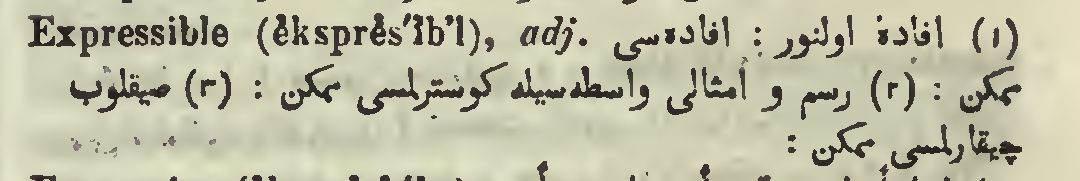 Expressible (ĕksprĕs′ĭb’l), adj. (١) افادهٔ اولنور : افاده‌سی
ممکن : (٢) رسم و امثالی واسطه‌سیله کوسترلمسی ممکن : (٣) صیقلوب
چیقارلمسی ممکن :